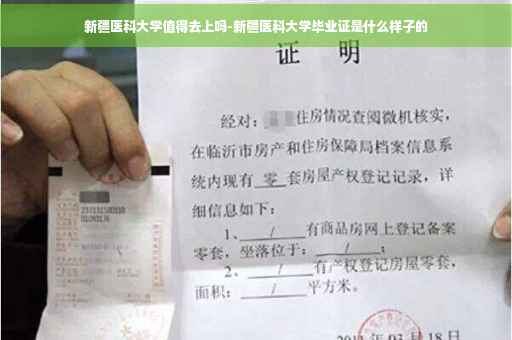 新疆医科大学值得去上吗-新疆医科大学毕业证是什么样子的
证 明
经对：住房情况查阅微机核实，
在临沂市房产和住房保障局档案信息系
统内现有 零 套房屋产权登记记录，详
细信息如下：
1、 / 有商品房网上登记备案
零套，坐落位于： / ；
2、 / 有产权登记房屋零套，
面积： / 平方米。
03月18日